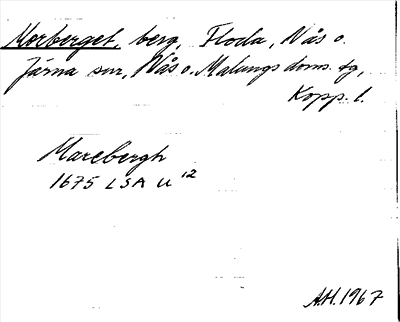 Morberget, berg, Floda, Nås o.
Järna snr, Nås o. Malungs doms. tg,
Kopp. l.
Marebergh
1675 LSA U 12
A.H. 1967